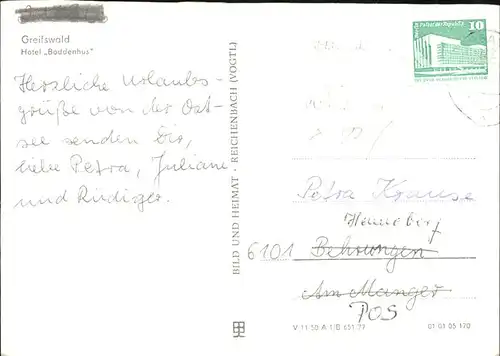 Greifswald
Hotel „Boddenhus"
Herzliche Urlaubs-
grüße von der Ost-
see senden Dir,
liebe Petra, Juliane
und Rüdiger.
BILD UND HEIMAT · REICHENBACH (VOGTL)
10
Petra Krause
Henneberg
6101 Behrungen
Am Manger
POS
V 11 50 A 1/B 601/77 01 01 05 170